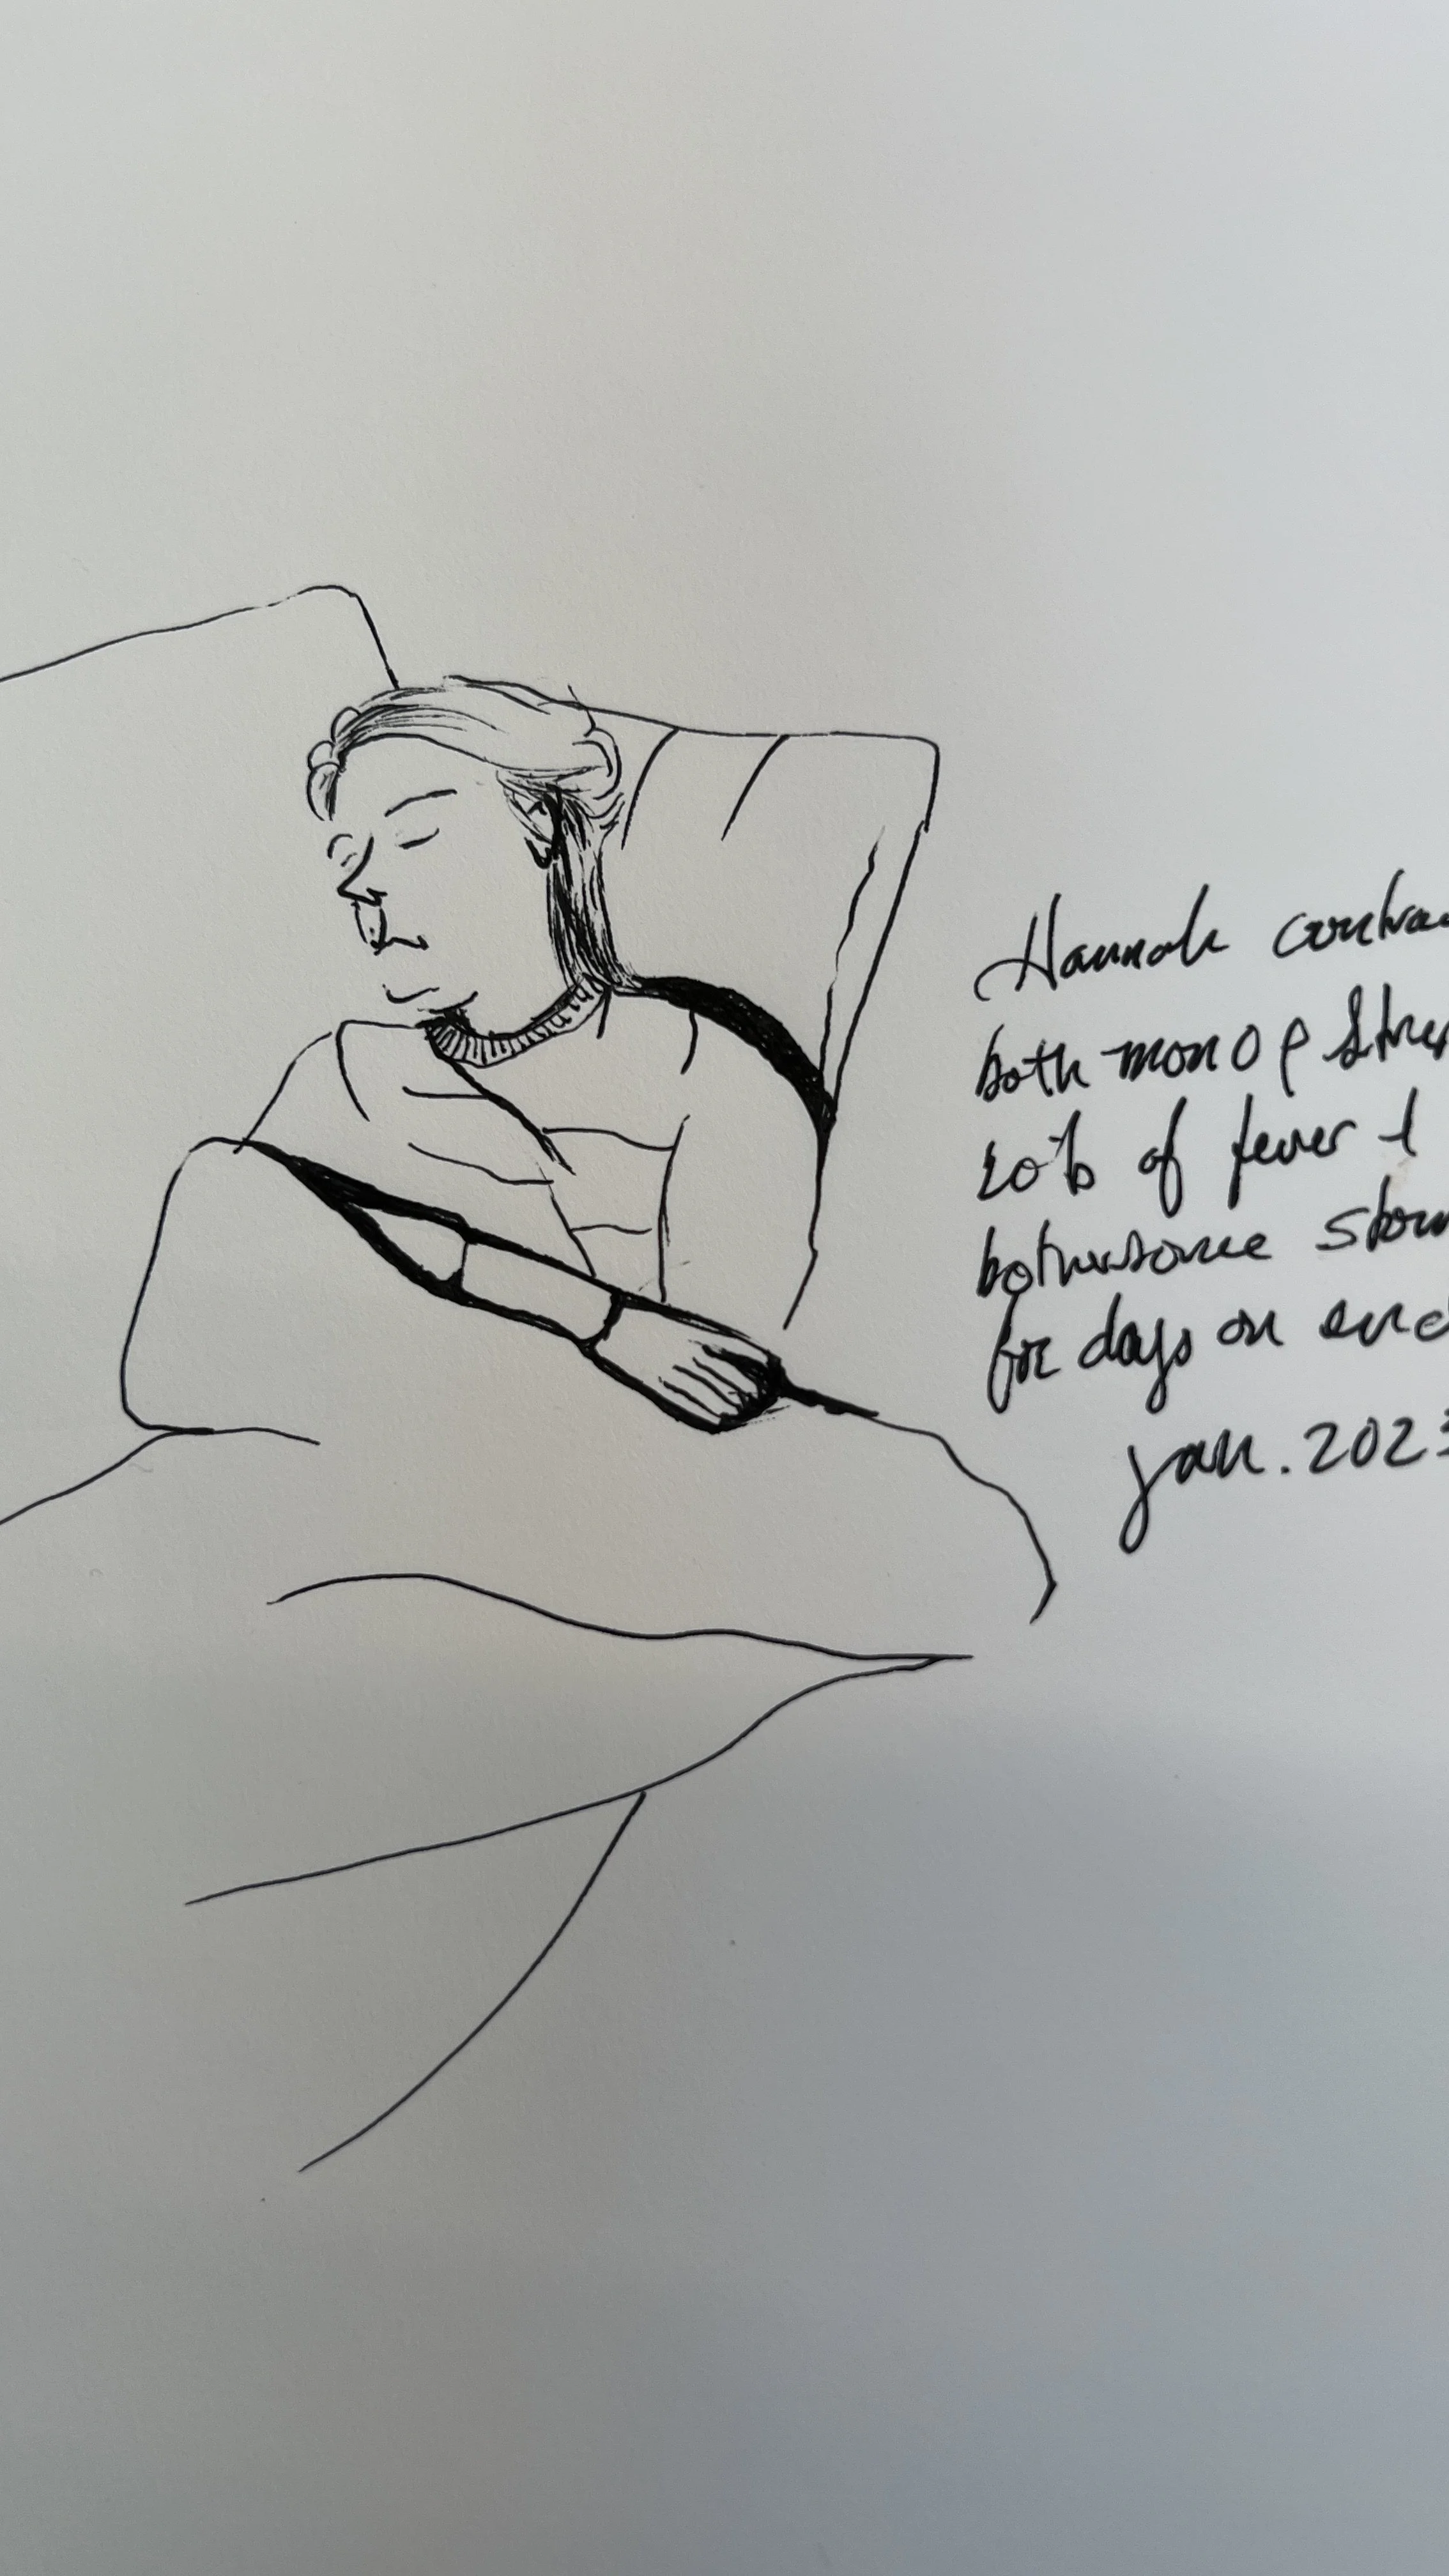 Hannah contrac
both mono & Strep
lots of fever &
bothersome stom
for days on end
Jan. 2023